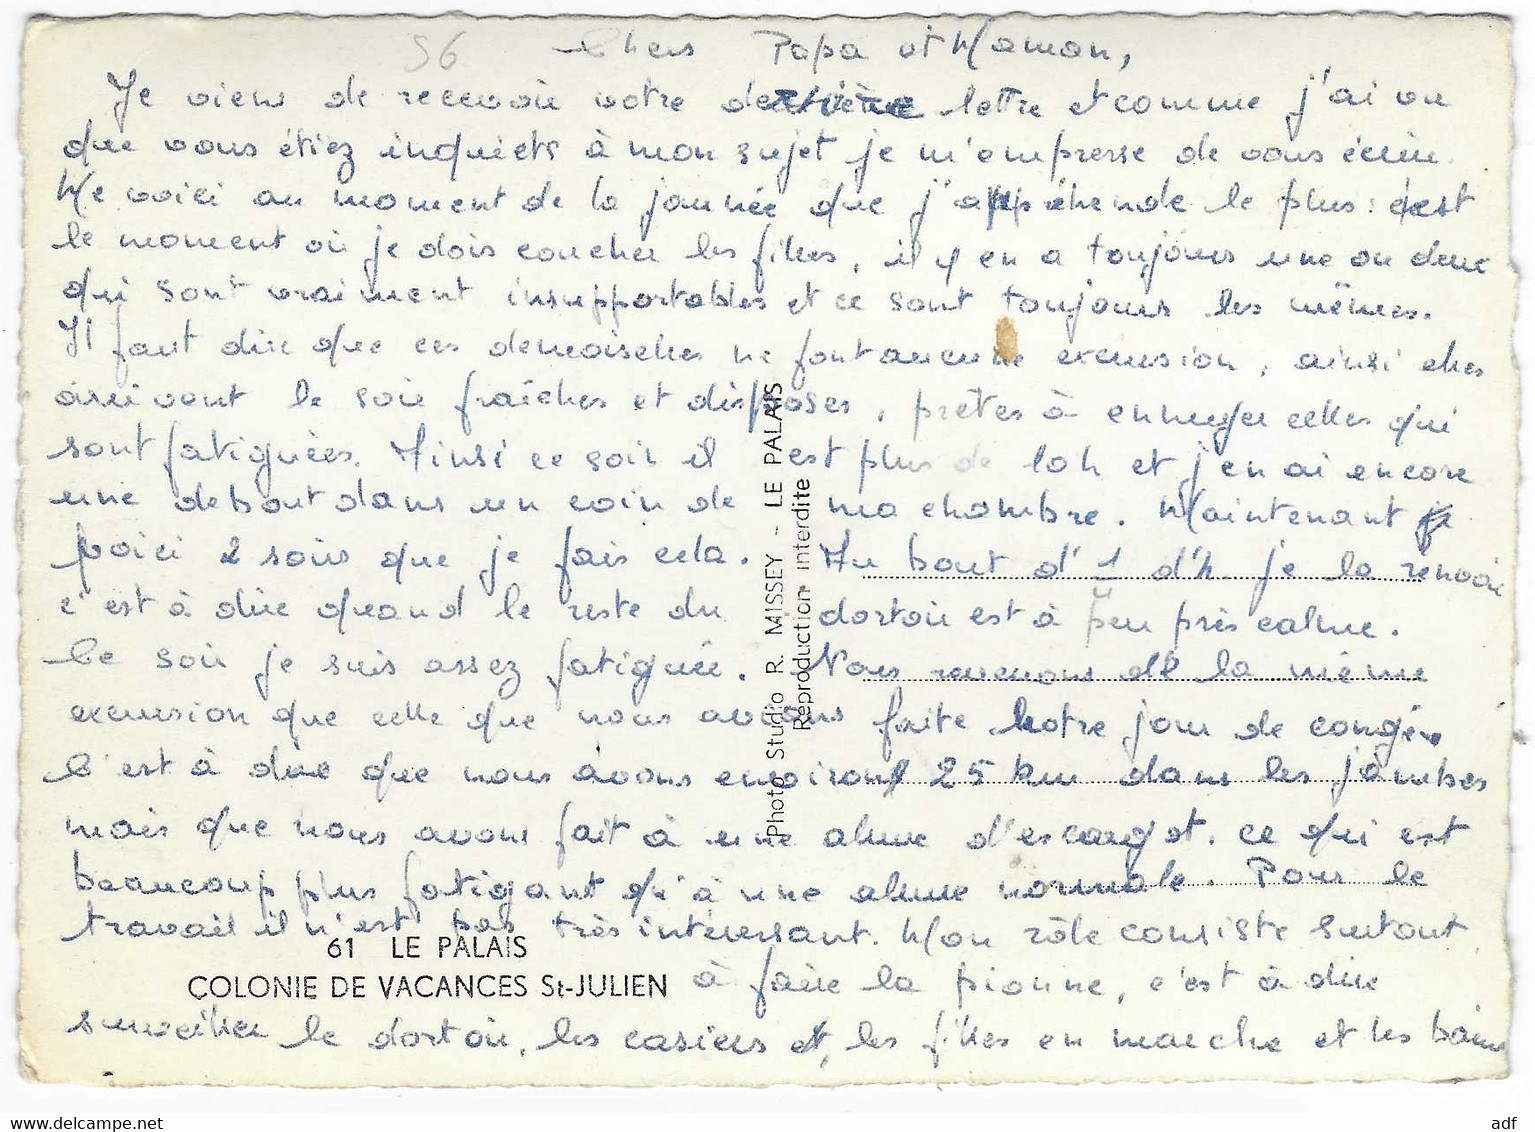 56 Chers Papa et Maman,
Je viens de recevoir votre dernière lettre et comme j'ai vu
que vous étiez inquiets à mon sujet je m'empresse de vous écrire.
Me voici au moment de la journée que j'appréhende le plus : c'est
le moment où je dois coucher les filles, il y en a toujours une ou deux
qui sont vraiment insupportables et ce sont toujours les mêmes.
Il faut dire que ces demoiselles ne font aucune excursion, ainsi elles
arrivent le soir fraîches et disposes, prêtes à ennuyer celles qui
sont fatiguées. Ainsi ce soir il est plus de 10h et j'en ai encore
une debout dans un coin de ma chambre. Maintenant
voici 2 soirs que je fais cela. Au bout d'1 d'h je la renvoie
c'est à dire quand le reste du dortoir est à peu près calme.
Ce soir je suis assez fatiguée. Nous revenons de la même
excursion que celle que nous avions faite notre jour de congé.
C'est à dire que nous avons environ 25 km dans les jambes
mais que nous avons fait à une allure d'escargot. ce qui est
beaucoup plus fatigant qu'à une allure normale. Pour le
travail il n'est pas très intéressant. Mon rôle consiste surtout
à faire la pionne, c'est à dire
surveiller le dortoir, les casiers et, les filles en marche et les bains
61 LE PALAIS
COLONIE DE VACANCES St-JULIEN
Photo Studio R. MISSEY - LE PALAIS
Reproduction interdite
www.delcampe.net
adf